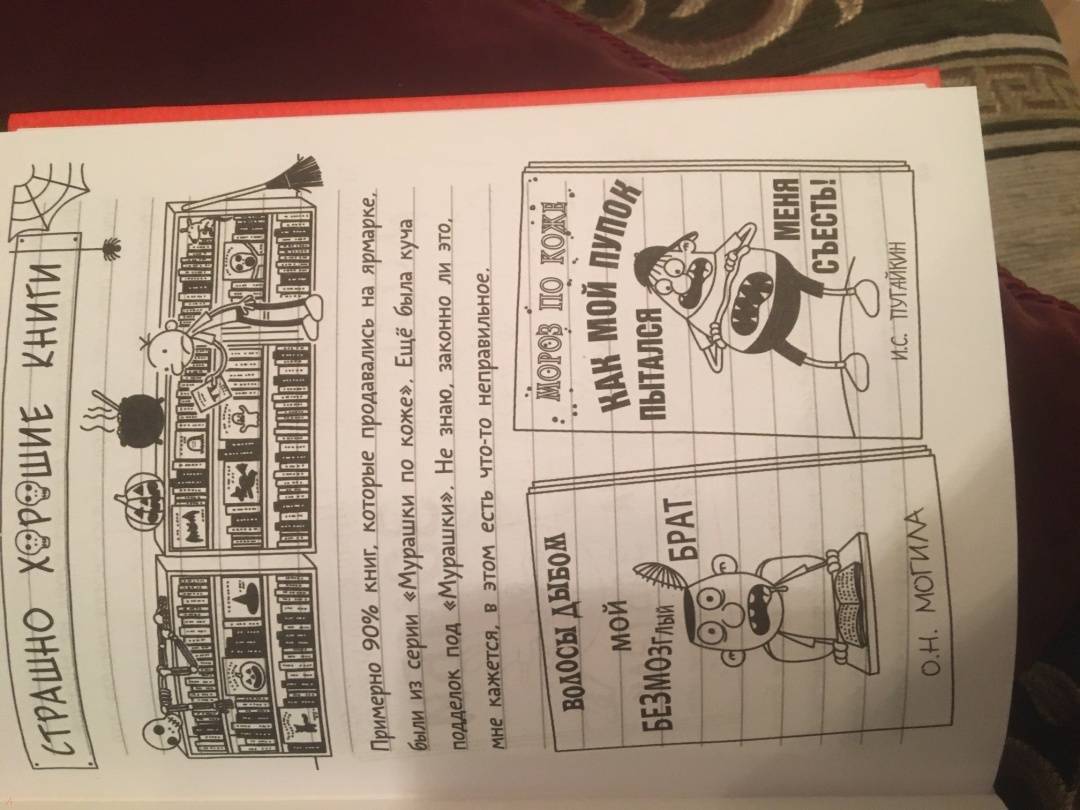 СТРАШНО ХОРОШИЕ КНИГИ
Примерно 90% книг, которые продавались на ярмарке,
были из серии «Мурашки по коже». Ещё была куча
подделок под «Мурашки». Не знаю, законно ли это,
мне кажется, в этом есть что-то неправильное.
ВОЛОСЫ ДЫБОМ
МОЙ
БЕЗМОЗГЛЫЙ
БРАТ
О.Н. МОГИЛА
МОРОЗ ПО КОЖЕ
КАК МОЙ ПУПОК
ПЫТАЛСЯ
МЕНЯ
СЪЕСТЬ!
И.С. ПУГАЙКИН